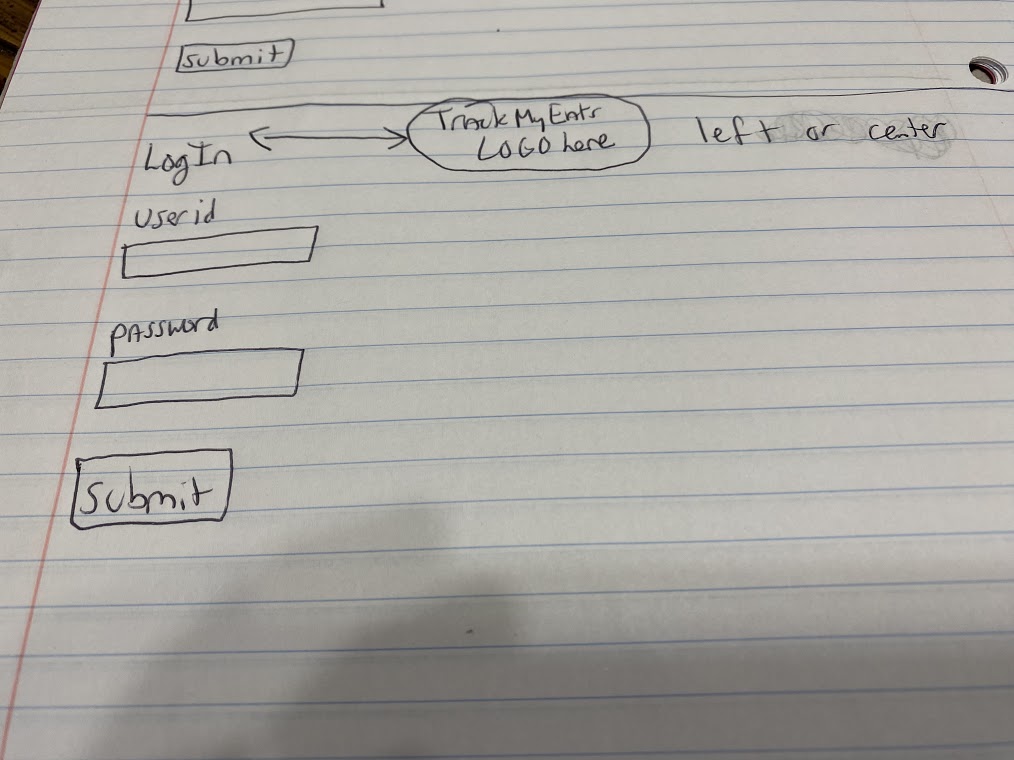 submit
Log In
TrackMyEats
LOGO here
left or center
userid
password
submit